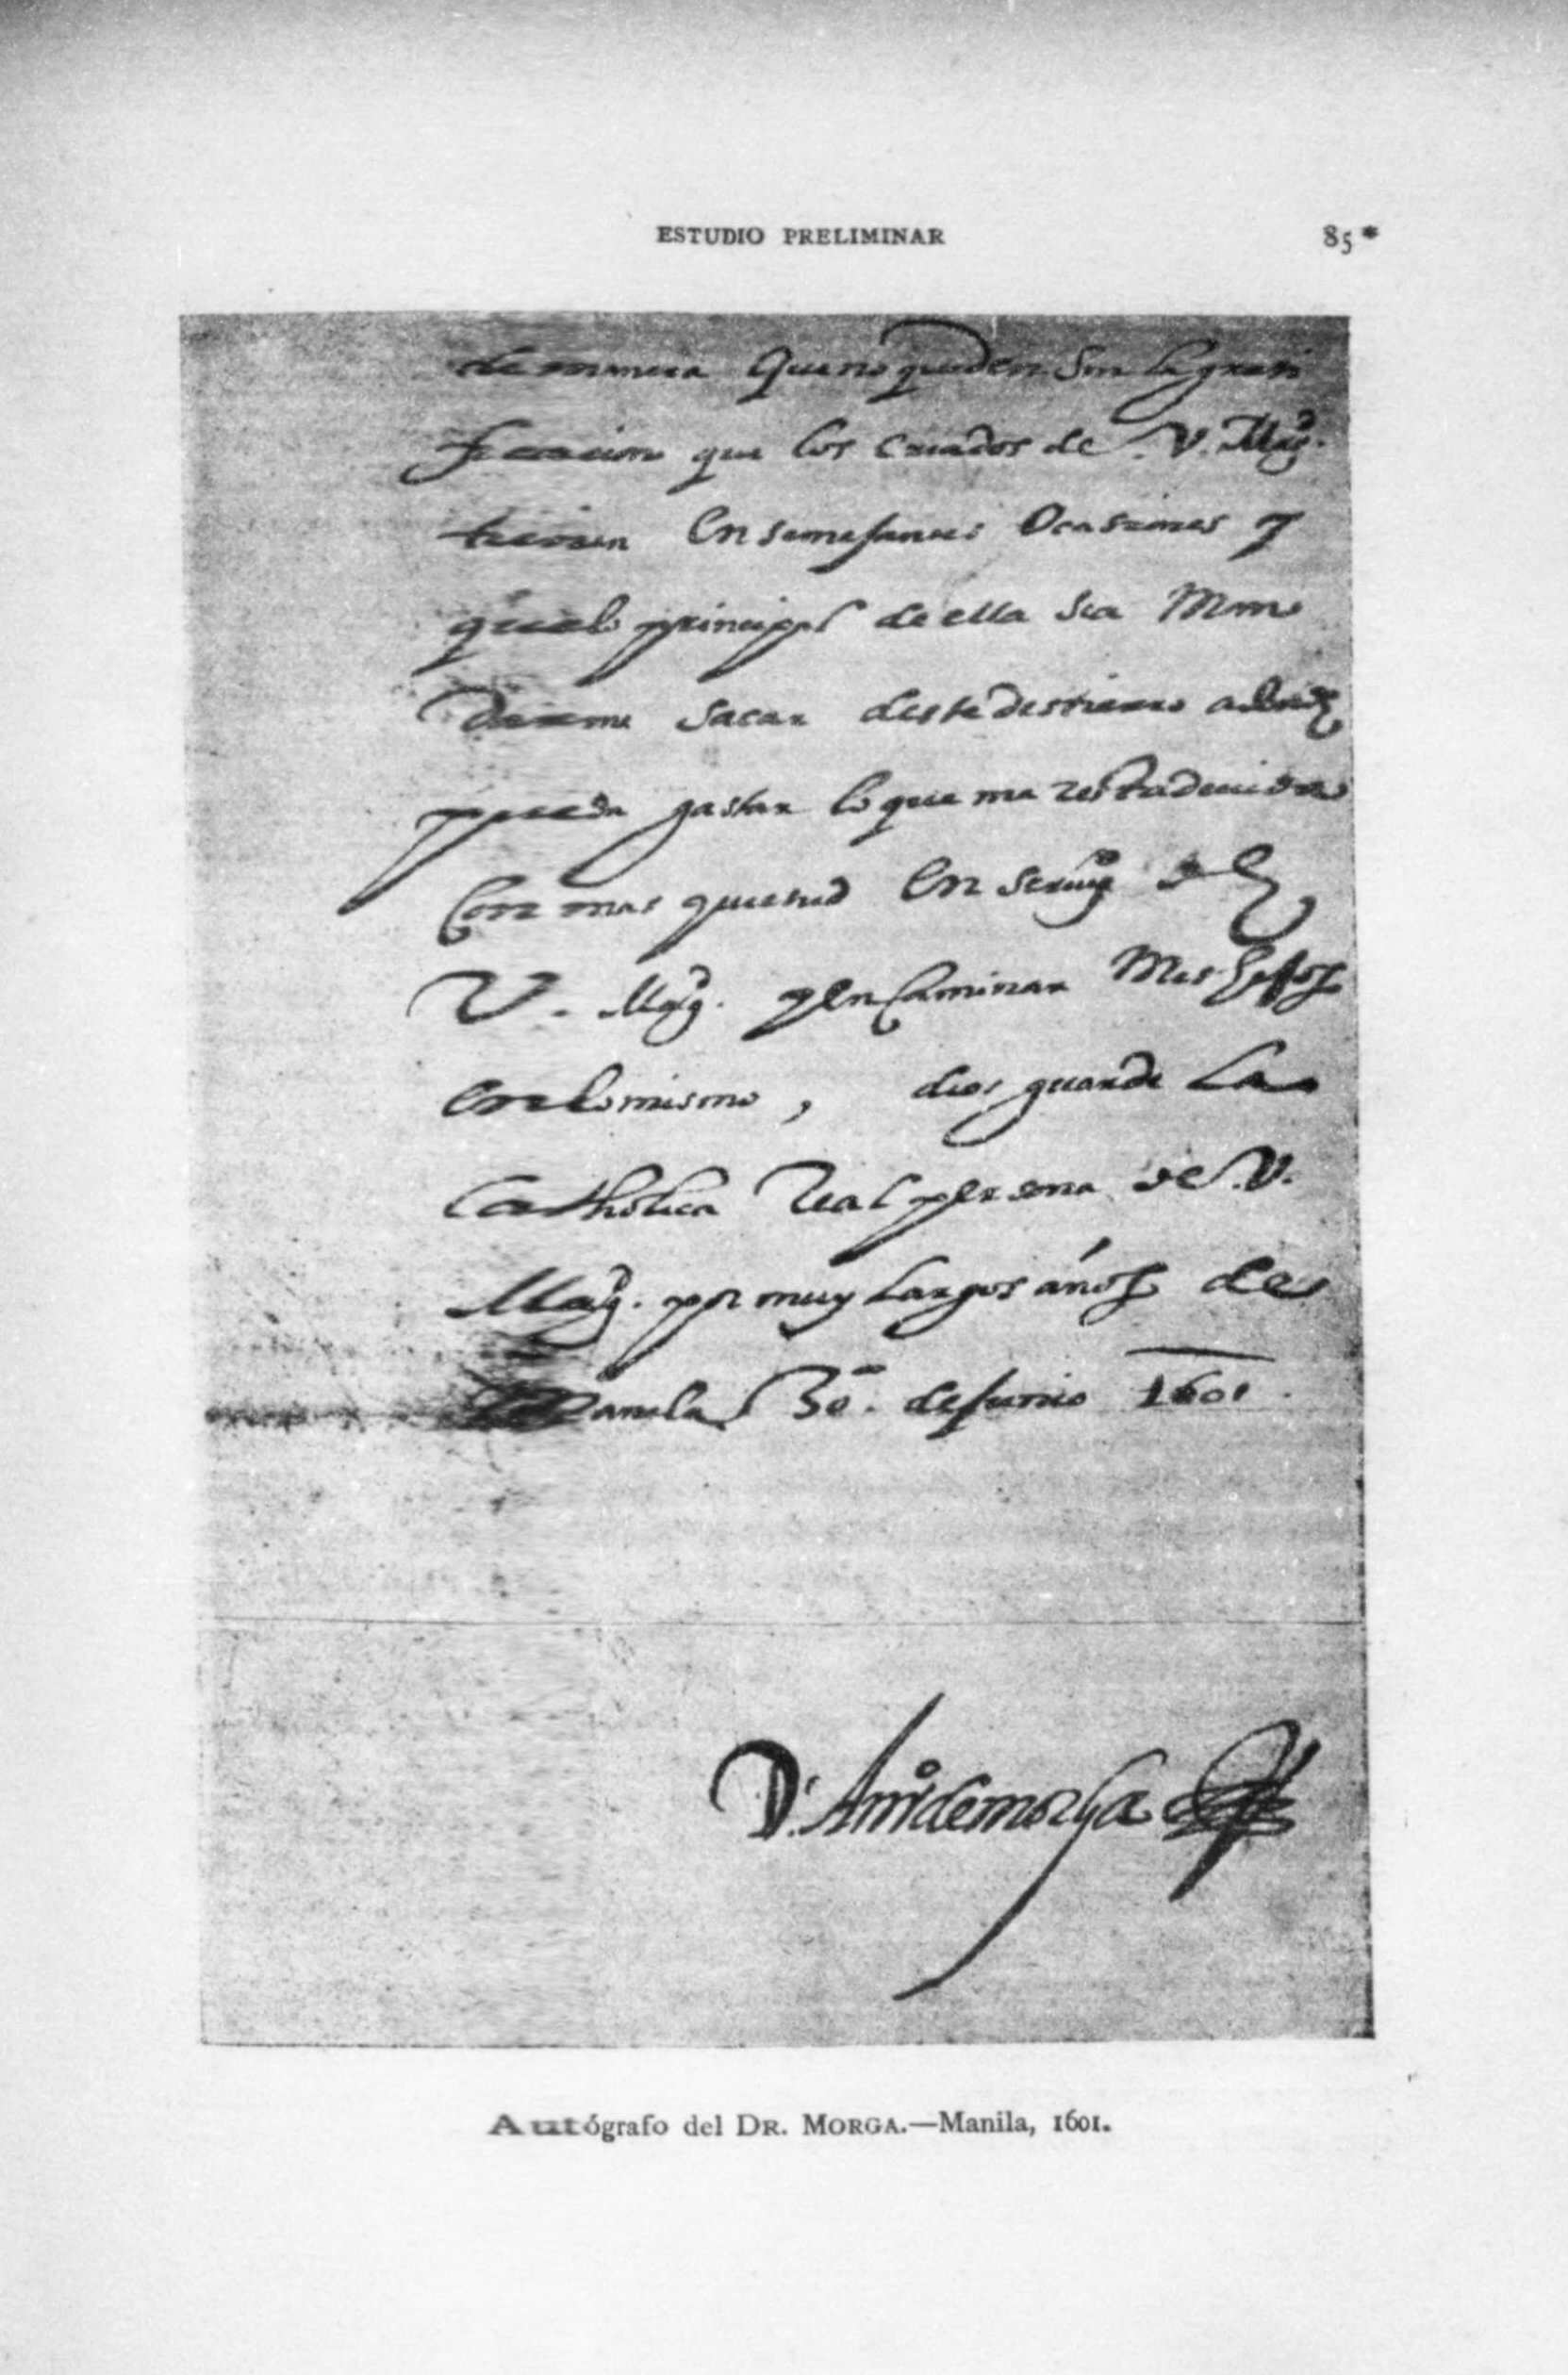 ESTUDIO PRELIMINAR 85*
de manera que no queden sin la grati
ficacion que los criados de V. Magd.
tienen en semejantes ocasiones y
que lo principal de ella sea man
darme sacar deste destierro a donde
pueda gastar lo que me resta de vida
con mas quietud en servio de
V. Magd. y encaminar mis hijos
en lo mismo, dios guarde la
catholica real persona de V.
Magd. por muy largos años de
Manila 30. de junio 1601
Dr. Anto de morga
Autógrafo del DR. MORGA.—Manila, 1601.